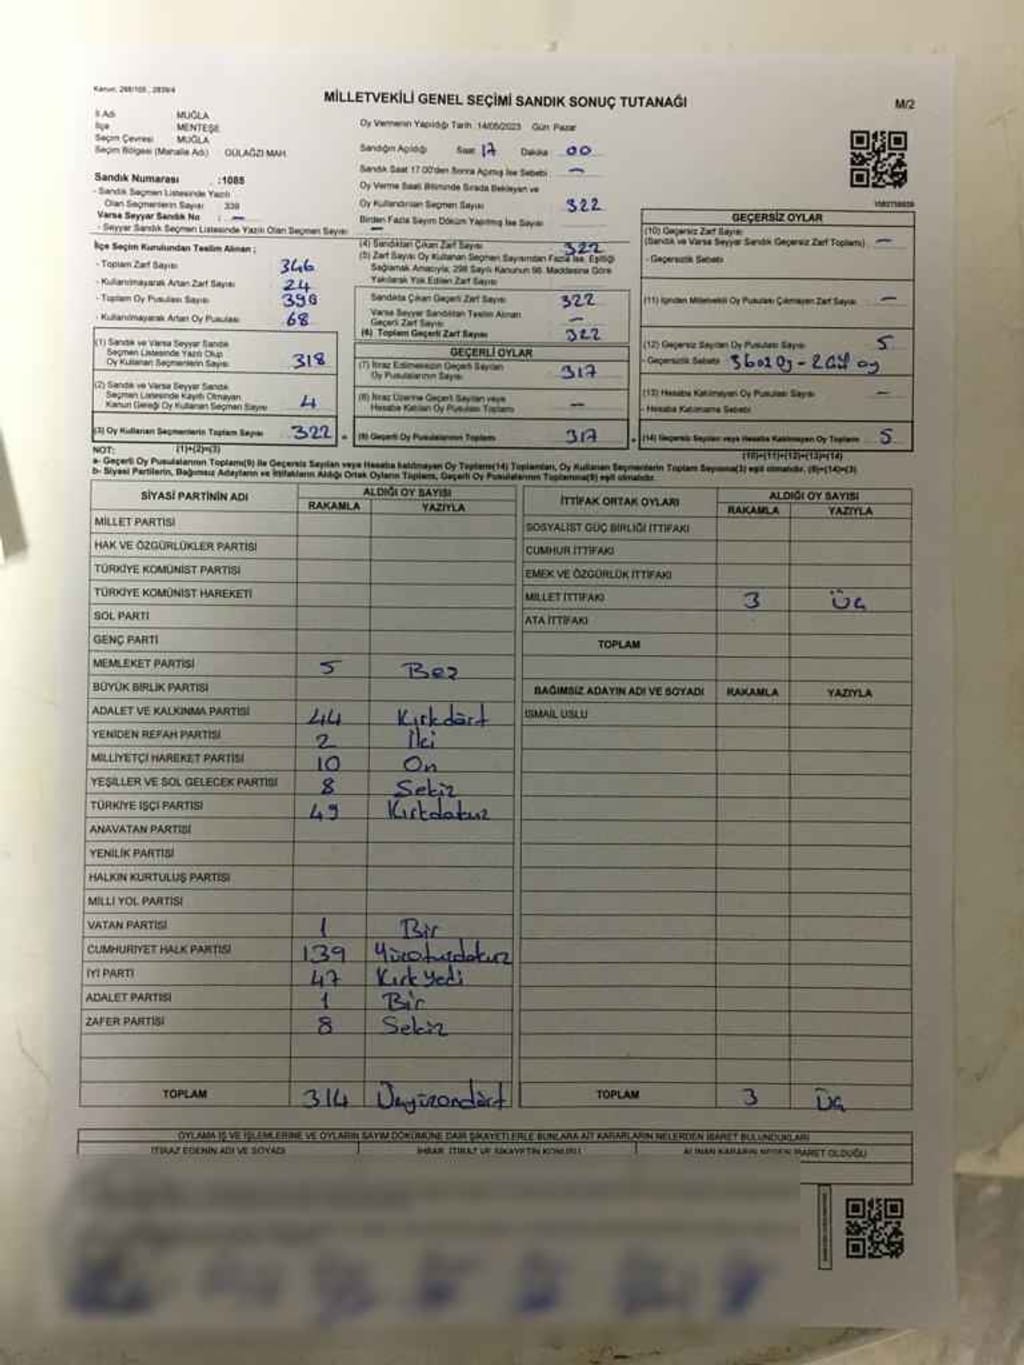 Kanun: 298/105, 2839/4
MİLLETVEKİLİ GENEL SEÇİMİ SANDIK SONUÇ TUTANAĞI
M/2
İl Adı MUĞLA
İlçe MENTEŞE
Seçim Çevresi MUĞLA
Seçim Bölgesi (Mahalle Adı) GÜLAĞZI MAH.
Sandık Numarası :1085
- Sandık Seçmen Listesinde Yazılı
Olan Seçmenlerin Sayısı 339
Varsa Seyyar Sandık No : -
- Seyyar Sandık Seçmen Listesinde Yazılı Olan Seçmen Sayısı -
İlçe Seçim Kurulundan Teslim Alınan ;
- Toplam Zarf Sayısı 346
- Kullanılmayarak Artan Zarf Sayısı 24
- Toplam Oy Pusulası Sayısı 390
- Kullanılmayarak Artan Oy Pusulası 68
(1) Sandık ve Varsa Seyyar Sandık
Seçmen Listesinde Yazılı Olup
Oy Kullanan Seçmenlerin Sayısı 318
(2) Sandık ve Varsa Seyyar Sandık
Seçmen Listesinde Kayıtlı Olmayan
Kanun Gereği Oy Kullanan Seçmen Sayısı 4
(3) Oy Kullanan Seçmenlerin Toplam Sayısı 322
(1)+(2)=(3)
Oy Vermenin Yapıldığı Tarih :14/05/2023 Gün: Pazar
Sandığın Açıldığı Saat 17 Dakika 00
Sandık Saat 17.00'den Sonra Açılmış İse Sebebi -
Oy Verme Saati Bitiminde Sırada Bekleyen ve
Oy Kullandırılan Seçmen Sayısı 322
Birden Fazla Sayım Döküm Yapılmış İse Sayısı
(4) Sandıktan Çıkan Zarf Sayısı 322
(5) Zarf Sayısı Oy Kullanan Seçmen Sayısından Fazla İse, Eşitliği
Sağlamak Amacıyla; 298 Sayılı Kanunun 98. Maddesine Göre
Yakılarak Yok Edilen Zarf Sayısı
Sandıkta Çıkan Geçerli Zarf Sayısı 322
Varsa Seyyar Sandıktan Teslim Alınan
Geçerli Zarf Sayısı -
(6) Toplam Geçerli Zarf Sayısı 322
GEÇERLİ OYLAR
(7) İtiraz Edilmeksizin Geçerli Sayılan
Oy Pusulalarının Sayısı 317
(8) İtiraz Üzerine Geçerli Sayılan veya
Hesaba Katılan Oy Pusulası Toplamı -
(9) Geçerli Oy Pusulalarının Toplamı 317
GEÇERSİZ OYLAR
(10) Geçersiz Zarf Sayısı
(Sandık ve Varsa Seyyar Sandık Geçersiz Zarf Toplamı) -
- Geçersizlik Sebebi
(11) İçinden Milletvekili Oy Pusulası Çıkmayan Zarf Sayısı -
(12) Geçersiz Sayılan Oy Pusulası Sayısı 5
- Geçersizlik Sebebi
(13) Hesaba Katılmayan Oy Pusulası Sayısı -
- Hesaba Katılmama Sebebi
(14) Geçersiz Sayılan veya Hesaba Katılmayan Oy Toplamı 5
(10)+(11)+(12)+(13)=(14)
NOT:
a- Geçerli Oy Pusulalarının Toplamı(9) ile Geçersiz Sayılan veya Hesaba katılmayan Oy Toplamı(14) Toplamları, Oy Kullanan Seçmenlerin Toplam Sayısına(3) eşit olmalıdır. (9)+(14)=(3)
b- Siyasi Partilerin, Bağımsız Adayların ve İttifakların Aldığı Ortak Oyların Toplamı, Geçerli Oy Pusulalarının Toplamına(9) eşit olmalıdır.
SİYASİ PARTİNİN ADI ALDIĞI OY SAYISI
RAKAMLA YAZIYLA
MİLLET PARTİSİ
HAK VE ÖZGÜRLÜKLER PARTİSİ
TÜRKİYE KOMÜNİST PARTİSİ
TÜRKİYE KOMÜNİST HAREKETİ
SOL PARTİ
GENÇ PARTİ
MEMLEKET PARTİSİ 5 Beş
BÜYÜK BİRLİK PARTİSİ
ADALET VE KALKINMA PARTİSİ 44 Kırkdört
YENİDEN REFAH PARTİSİ 2 İki
MİLLİYETÇİ HAREKET PARTİSİ 10 On
YEŞİLLER VE SOL GELECEK PARTİSİ 8 Sekiz
TÜRKİYE İŞÇİ PARTİSİ 49 Kırkdokuz
ANAVATAN PARTİSİ
YENİLİK PARTİSİ
HALKIN KURTULUŞ PARTİSİ
MİLLİ YOL PARTİSİ
VATAN PARTİSİ 1 Bir
CUMHURİYET HALK PARTİSİ 139 Yüzotuzdokuz
İYİ PARTİ 47 Kırk yedi
ADALET PARTİSİ 1 Bir
ZAFER PARTİSİ 8 Sekiz
TOPLAM 314 Üçyüzondört
İTTİFAK ORTAK OYLARI ALDIĞI OY SAYISI
RAKAMLA YAZIYLA
SOSYALİST GÜÇ BİRLİĞİ İTTİFAKI
CUMHUR İTTİFAKI
EMEK VE ÖZGÜRLÜK İTTİFAKI
MİLLET İTTİFAKI 3 Üç
ATA İTTİFAKI
TOPLAM
BAĞIMSIZ ADAYIN ADI VE SOYADI RAKAMLA YAZIYLA
İSMAİL USLU
TOPLAM 3 Üç
OYLAMA İŞ VE İŞLEMLERİNE VE OYLARIN SAYIM DÖKÜMÜNE DAİR ŞİKAYETLERLE BUNLARA AİT KARARLARIN NELERDEN İBARET BULUNDUKLARI
İTİRAZ EDENİN ADI VE SOYADI İHBAR, İTİRAZ VE ŞİKAYETİN KONUSU ALINAN KARARIN NEDEN İBARET OLDUĞU